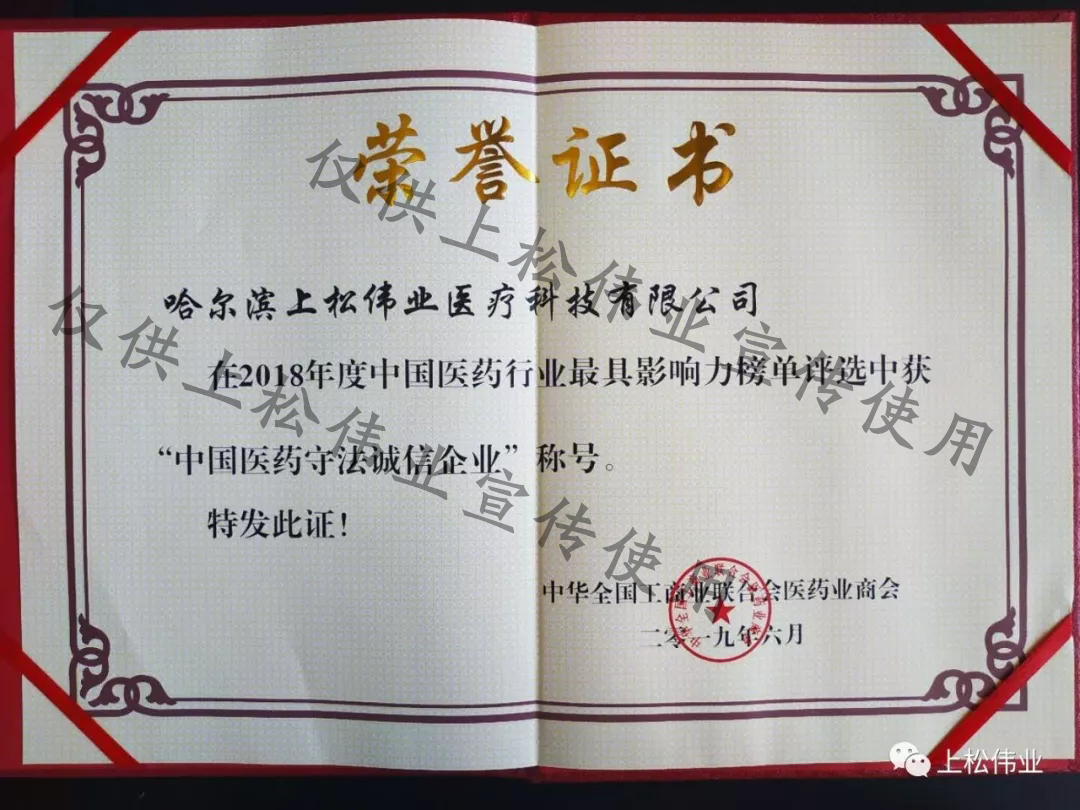 荣誉证书
哈尔滨上松伟业医疗科技有限公司
在2018年度中国医药行业最具影响力榜单评选中获
“中国医药守法诚信企业”称号。
特发此证！
中华全国工商业联合会医药业商会
二零一九年六月
仅供上松伟业宣传使用
仅供上松伟业宣传使用
上松伟业